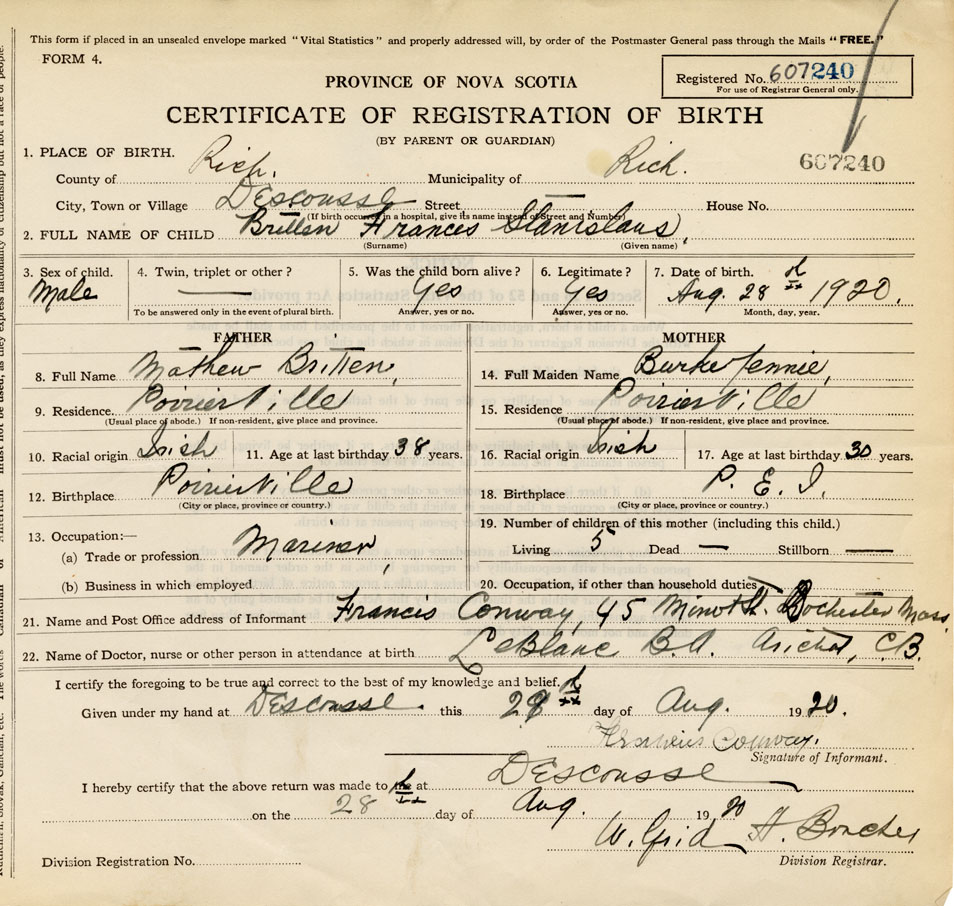 This form if placed in an unsealed envelope marked "Vital Statistics" and properly addressed will, by order of the Postmaster General pass through the Mails "FREE."
FORM 4.
Registered No. 607240
For use of Registrar General only.
PROVINCE OF NOVA SCOTIA
CERTIFICATE OF REGISTRATION OF BIRTH
(BY PARENT OR GUARDIAN)
607240
1. PLACE OF BIRTH.
County of Rich. Municipality of Rich.
City, Town or Village Descousse Street — House No.
(If birth occurred in a hospital, give its name instead of Street and Number)
2. FULL NAME OF CHILD Britten Frances Stanislaus,
(Surname) (Given name)
3. Sex of child. 4. Twin, triplet or other? 5. Was the child born alive? 6. Legitimate? 7. Date of birth.
Male — Yes Yes Aug. 28th 1920.
To be answered only in the event of plural birth. Answer, yes or no. Answer, yes or no. Month, day, year.
FATHER
8. Full Name Mathew Britten,
9. Residence. Poirierville
(Usual place of abode.) If non-resident, give place and province.
10. Racial origin Irish 11. Age at last birthday 38 years.
12. Birthplace Poirierville
(City or place, province or country.)
13. Occupation:—
(a) Trade or profession Mariner,
(b) Business in which employed
MOTHER
14. Full Maiden Name Burke Jennie,
15. Residence Poirierville
(Usual place of abode.) If non-resident, give place and province.
16. Racial origin Irish 17. Age at last birthday 30 years.
18. Birthplace P. E. I.
(City or place, province or country.)
19. Number of children of this mother (including this child.)
Living 5 Dead — Stillborn —
20. Occupation, if other than household duties
21. Name and Post Office address of Informant Francis Conway, 45 Minot St. Mass.
22. Name of Doctor, nurse or other person in attendance at birth LeBlanc B.A. Arichat, C.B.
I certify the foregoing to be true and correct to the best of my knowledge and belief.
Given under my hand at Descousse. this 28th day of Aug. 1920.
Conway.
Signature of Informant.
I hereby certify that the above return was made to me at Descousse
on the 28th day of Aug. 1920
Division Registrar.
Division Registration No.